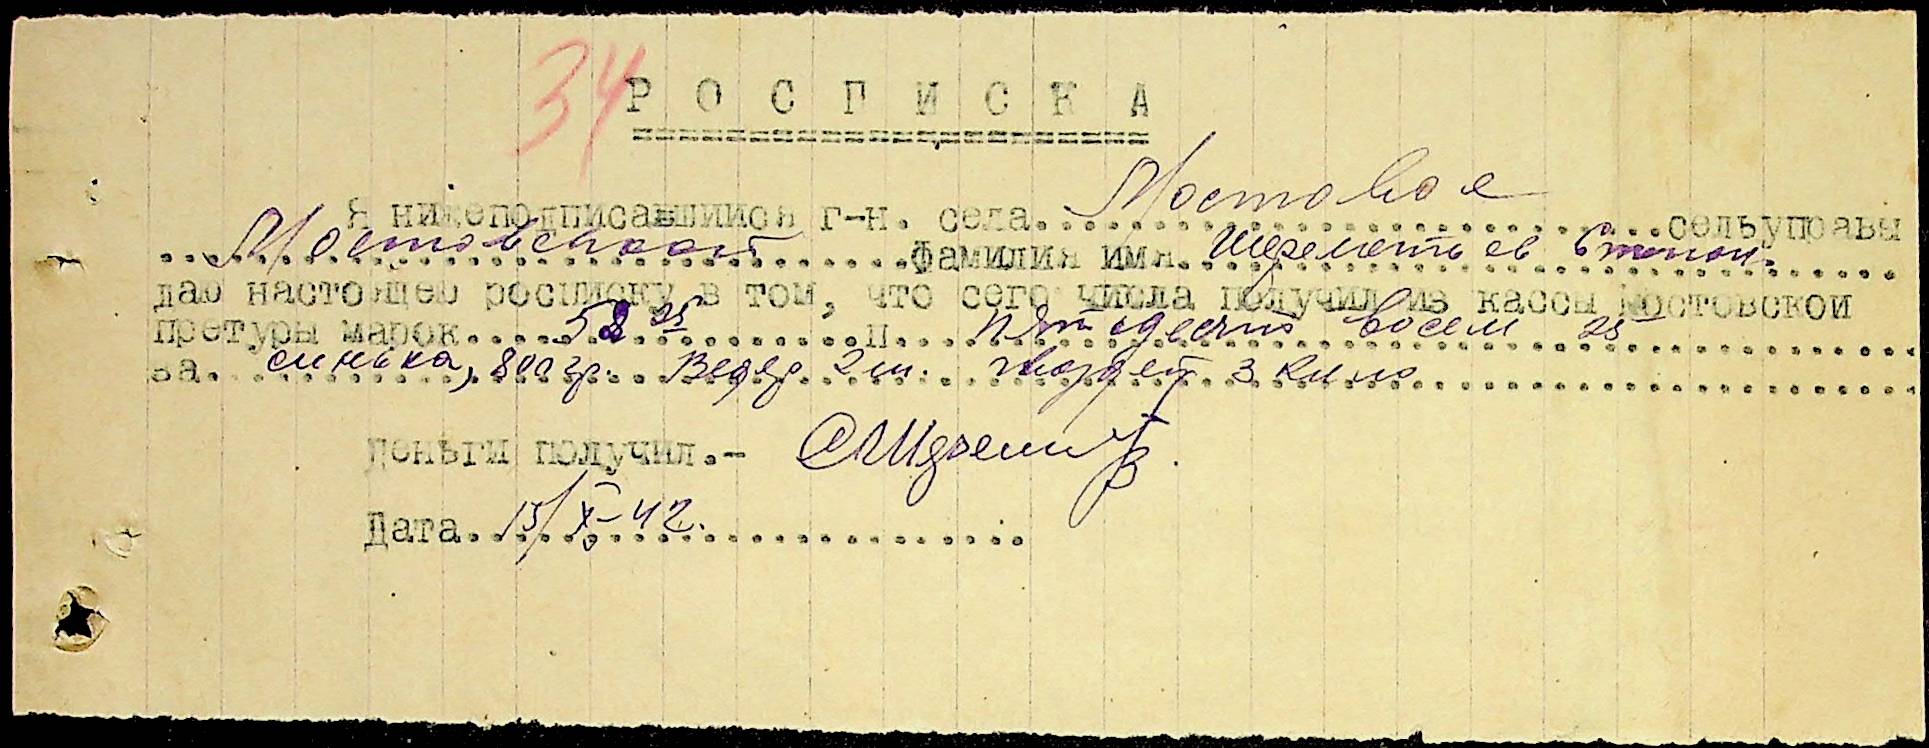 34
РОСПИСКА
Я нижеподписавшийся г-н. села. Мостовое сельуправы
Мостовской Фамилия имя. Шереметьев Степан.
даю настоящею росписку в том, что сего числа получил из кассы Мостовской
претуры марок 58 25 п. пятдесят восем 25
за. синька, 800 гр. Ведер 2 ш. гвоздей 3 кило
Деньги получил.-
Дата. 15/X-42.